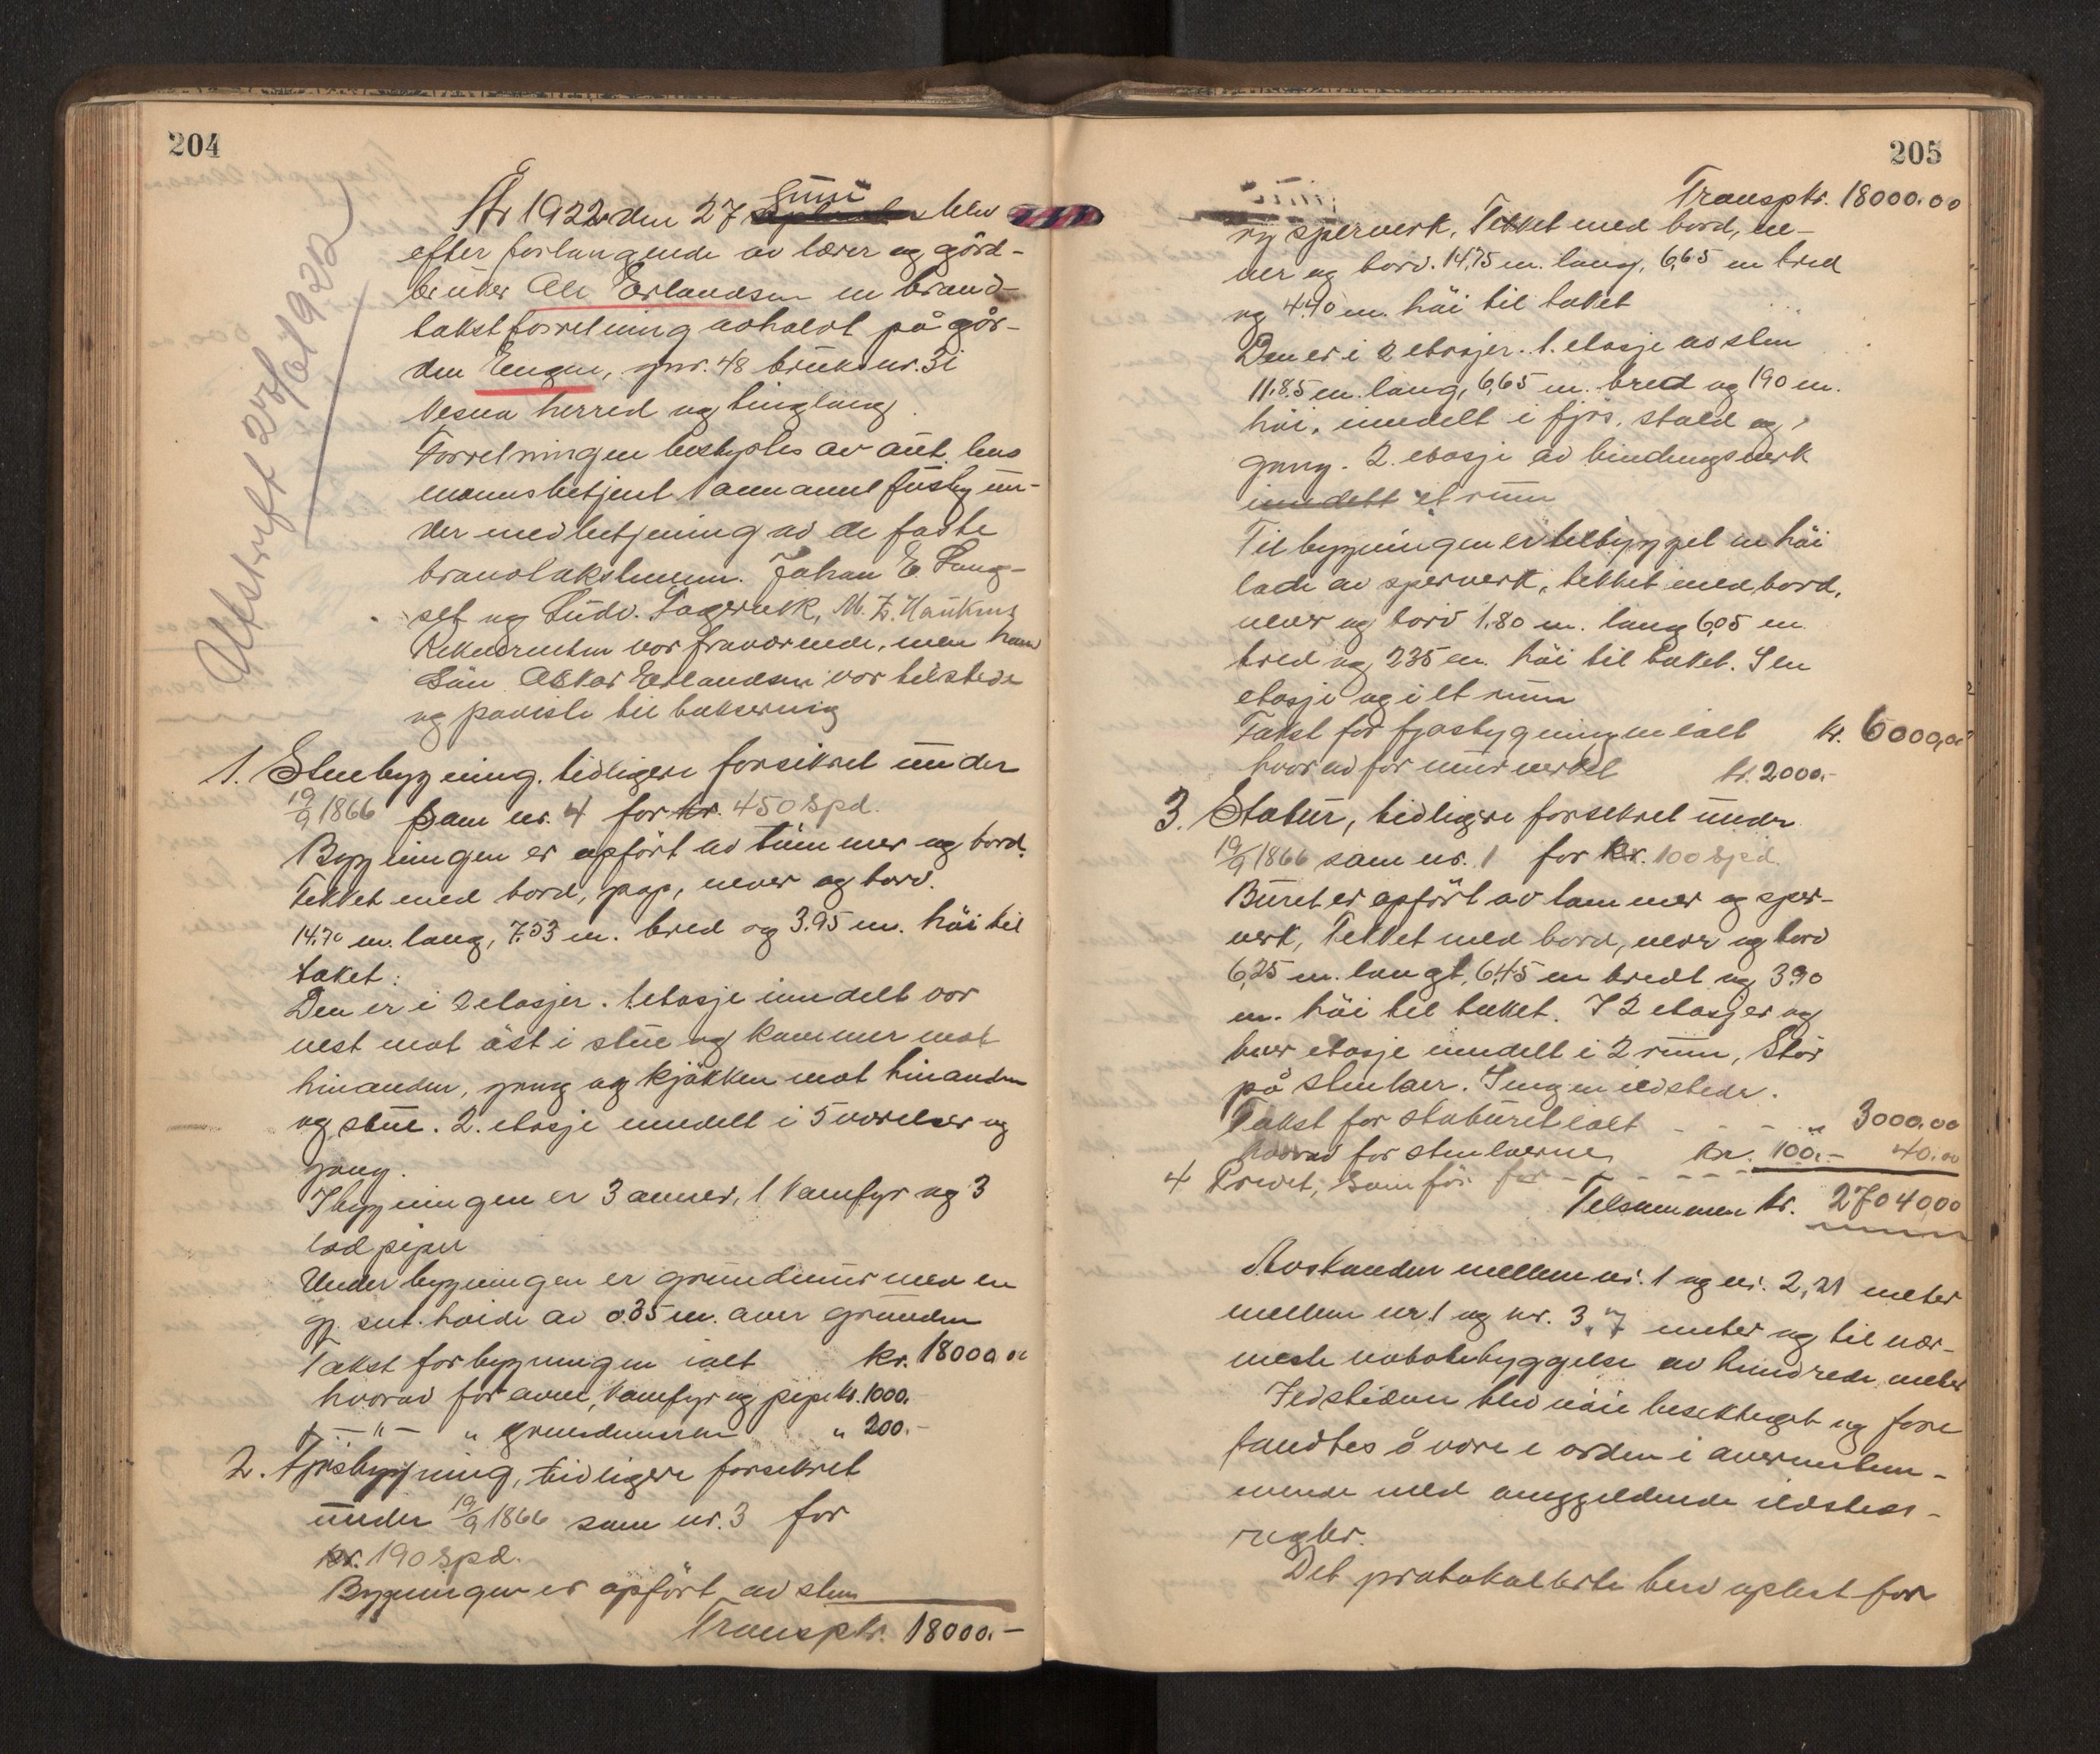 204
Utskrift 28/6 1922
År 1922 den 27 Juni blev
efter forlangende av lærer og gård-
bruker Ole Erlandsen en brand-
takstforretning avholdt på går-
den Engen, gnr. 48 bruksnr. 3 i
Nesna herred og tinglang
Forretningen bestyrtes av aut. lens
mannsbetjent Husby un-
der medbetjening av de faste
brandtakstmenn. Johan E. Lang-
set og Ludv. Fagervik, M. Z. Hauknes
Rekvirenten var fraværende, men hans
sön Oskar Erlandsen var tilstede
og paaviste til taksering
1. Stuebygning, tidligere forsikret under
19/9 1866 som nr. 4 for kr. 450 Spd.
Bygningen er opfört av tömmer og bord.
Tekket med bord, pap, never og torv.
14.70 m. lang, 7.53 m. bred og 3.95 m. höi til
taket.
Den er i 2 etasjer. 1. etasje inndelt vor
vest mot öst i stue og kammer mot
hinanden, gang og kjökken mot hinanden
og stue. 2. etasje inndelt i 5 værelser og
gang.
I bygningen er 3 ovner, 1 kamfyr og 3
lod piper
Under bygningen er grundmur med en
gj. snt. höide av 0.35 m. over grunden
Takst for bygningen ialt kr. 18000.00
hvorav for ovne, kamfyr og pipe kr. 1000.
" grundmuren " 200.-
2. Fjösbygning, tidligere forsikret
under 19/9 1866 som nr. 3 for
kr. 190 Spd.
Bygningen er opfört av sten
Transptr. 18000.-
205
Transptr. 18000.00
og sperverk. Tekket med bord, ne-
ver og torv. 14,75 m. lang, 6,65 m bred
og 4.40 m. höi til taket
Den er i 2 etasjer. 1. etasje av sten
11.85 m. lang, 6,65 m. bred og 1.90 m.
höi, inndelt i fjös, stald og
gang. 2. etasje av bindingsverk
inndelt et rum
Til bygningen er tilbygget en höi
lade av sperverk, tekket med bord,
never og torv 1.80 m. lang 6,05 m
bred og 2.35 m. höi til taket. I en
etasje og i et rum
Takst for fjösbygningen ialt kr. 6000,00
hvorav for murverket kr. 2000.-
3. Stabur, tidligere forsikret under
19/9 1866 som nr. 1 for kr. 100 Spd.
Buret er opfört av tømmer og sper-
verk, Tekket med bord, never og torv
6,25 m. langt, 6,45 m bredt og 3.90
m. höi til taket. I 2 etasjer og
hver etasje inndelt i 2 rum, Står
på stenkar. Ingen ildsteder.
Takst for staburet ialt - - - " 3000.00
hvorav for stenkarene kr. 100.-
4 Privet, som för for - - - 40.00
Tilsammen kr. 27040,00
Avstanden mellem nr. 1 og nr. 2, 21 meter
mellem nr. 1 og nr. 3, 7 meter og til nær-
meste nabobebyggelse av hundrede meter
Ildstedene blev nöie besiktiget og fore
fandtes å være i orden i overenstem-
mende med omgjeldende ildsteds-
regler.
Det protokollerte blev oplest for